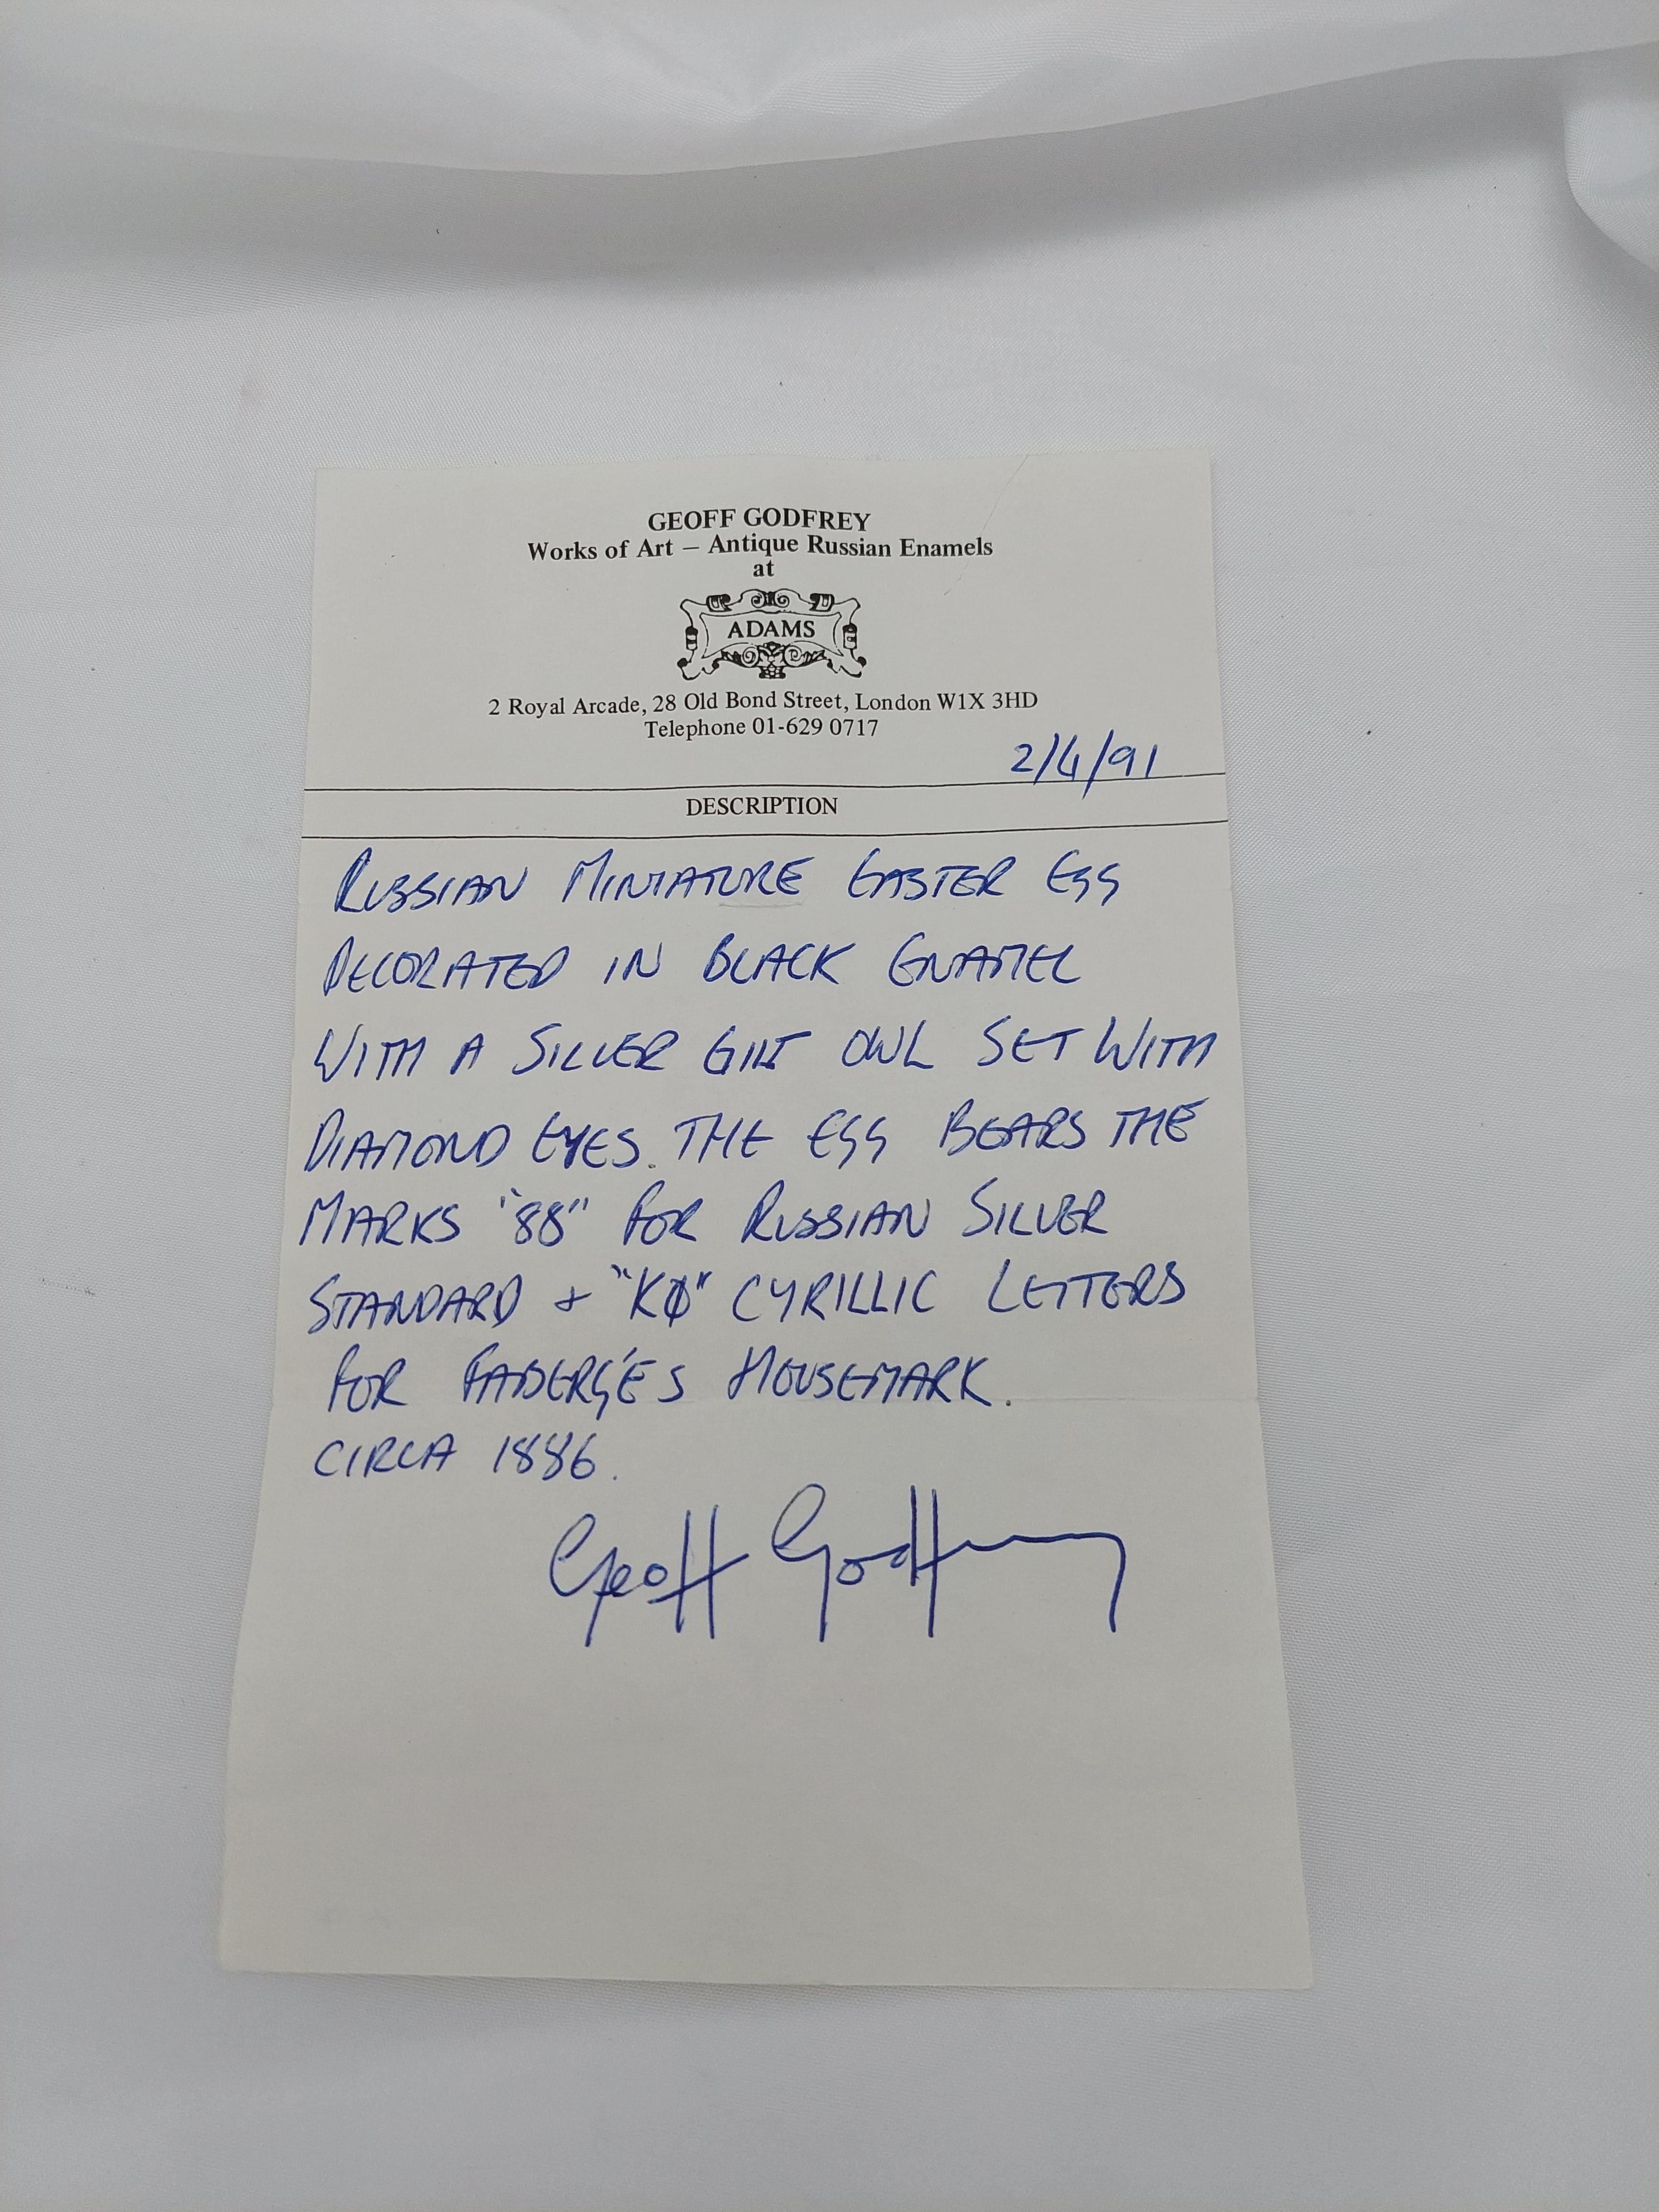 GEOFF GODFREY
Works of Art – Antique Russian Enamels
at
ADAMS
2 Royal Arcade, 28 Old Bond Street, London W1X 3HD
Telephone 01-629 0717
2/4/91
DESCRIPTION
RUSSIAN MINIATURE EASTER EGG
DECORATED IN BLACK ENAMEL
WITH A SILVER GILT OWL SET WITH
DIAMOND EYES. THE EGG BEARS THE
MARKS "88" FOR RUSSIAN SILVER
STANDARD + "KФ" CYRILLIC LETTERS
FOR FABERGÉ'S HOUSEMARK.
CIRCA 1886.
Geoff Godfrey